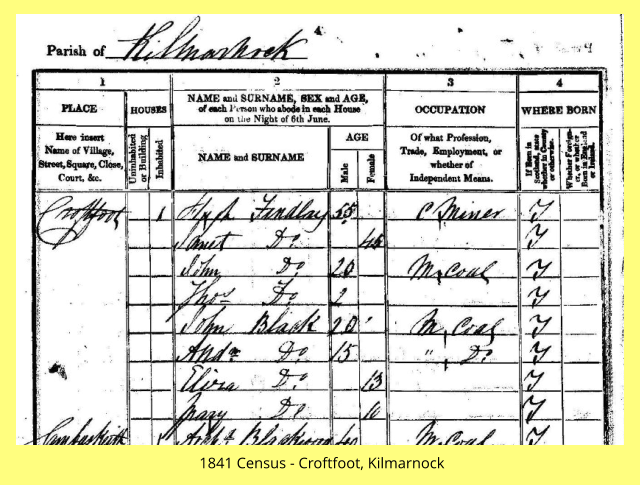 4
Parish of Kilmarnock
1 2 3 4
PLACE HOUSES NAME and SURNAME, SEX and AGE, of each Person who abode in each House on the Night of 6th June. OCCUPATION WHERE BORN
Here insert Name of Village, Street, Square, Close, Court, &c.
Uninhabited or Building
Inhabited
NAME and SURNAME
AGE
Male
Female
Of what Profession, Trade, Employment, or whether of Independent Means.
If Born in Scotland, state whether in County or otherwise.
Whether Foreigner, or whether Born in England or Ireland.
Croftfoot 1 Hugh Findlay 55 C Miner Y
Janet Do 45 Y
John Do 20 M, Coal Y
Thos Do 2 Y
John Black 20 M, Coal Y
Andw Do 15 " Do Y
Eliza Do 13 Y
Mary Do Y
1 Archd M, Coal Y
1841 Census - Croftfoot, Kilmarnock